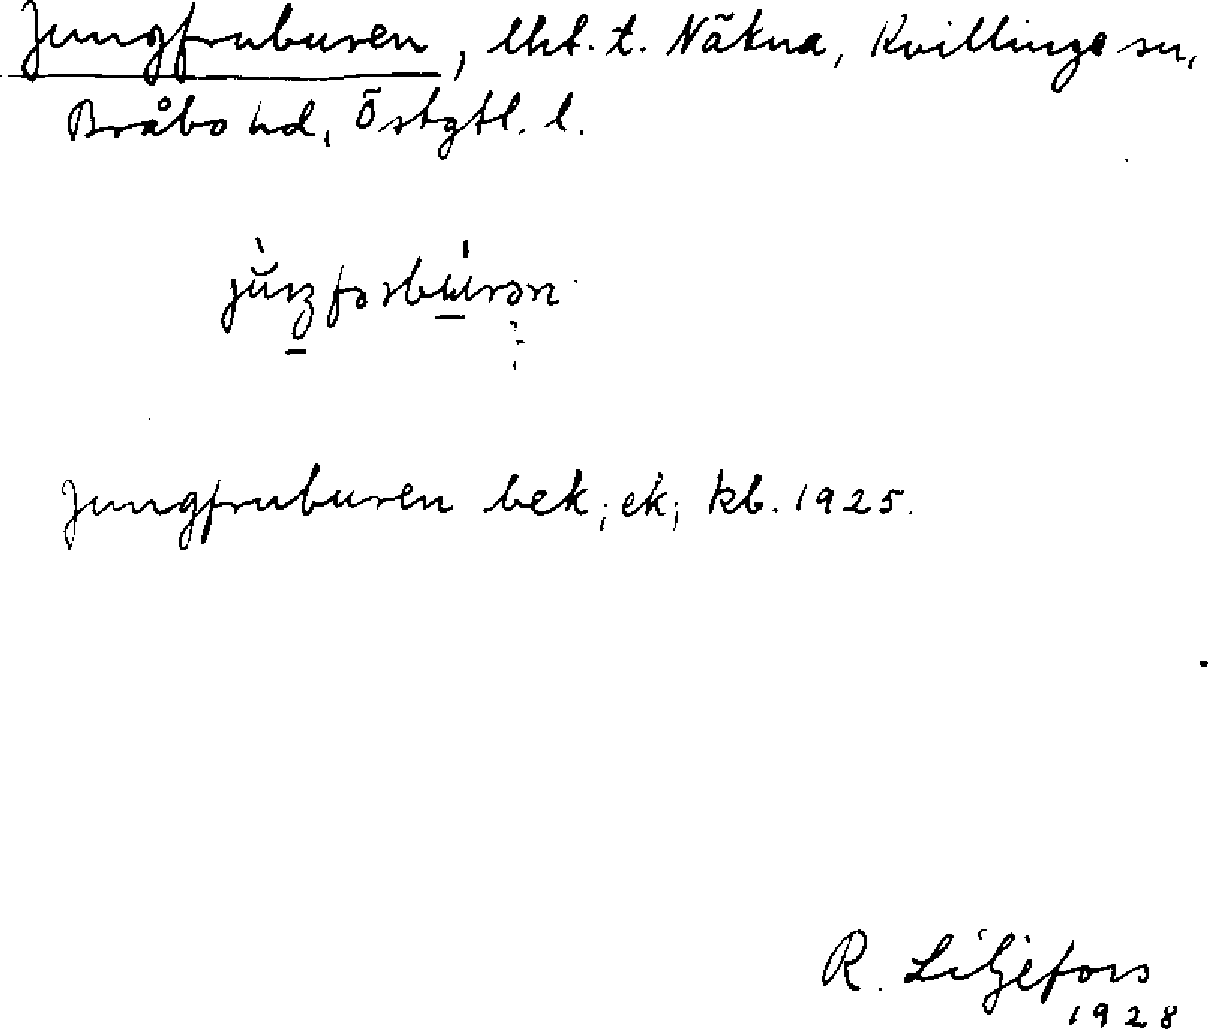 Jungfruburen, lht. t. Näkna, Kvillinge sn,
Bråbo hd, Östgtl. l.
Jungfruburen bek; ek; kb. 1925.
R. Liljefors
1928